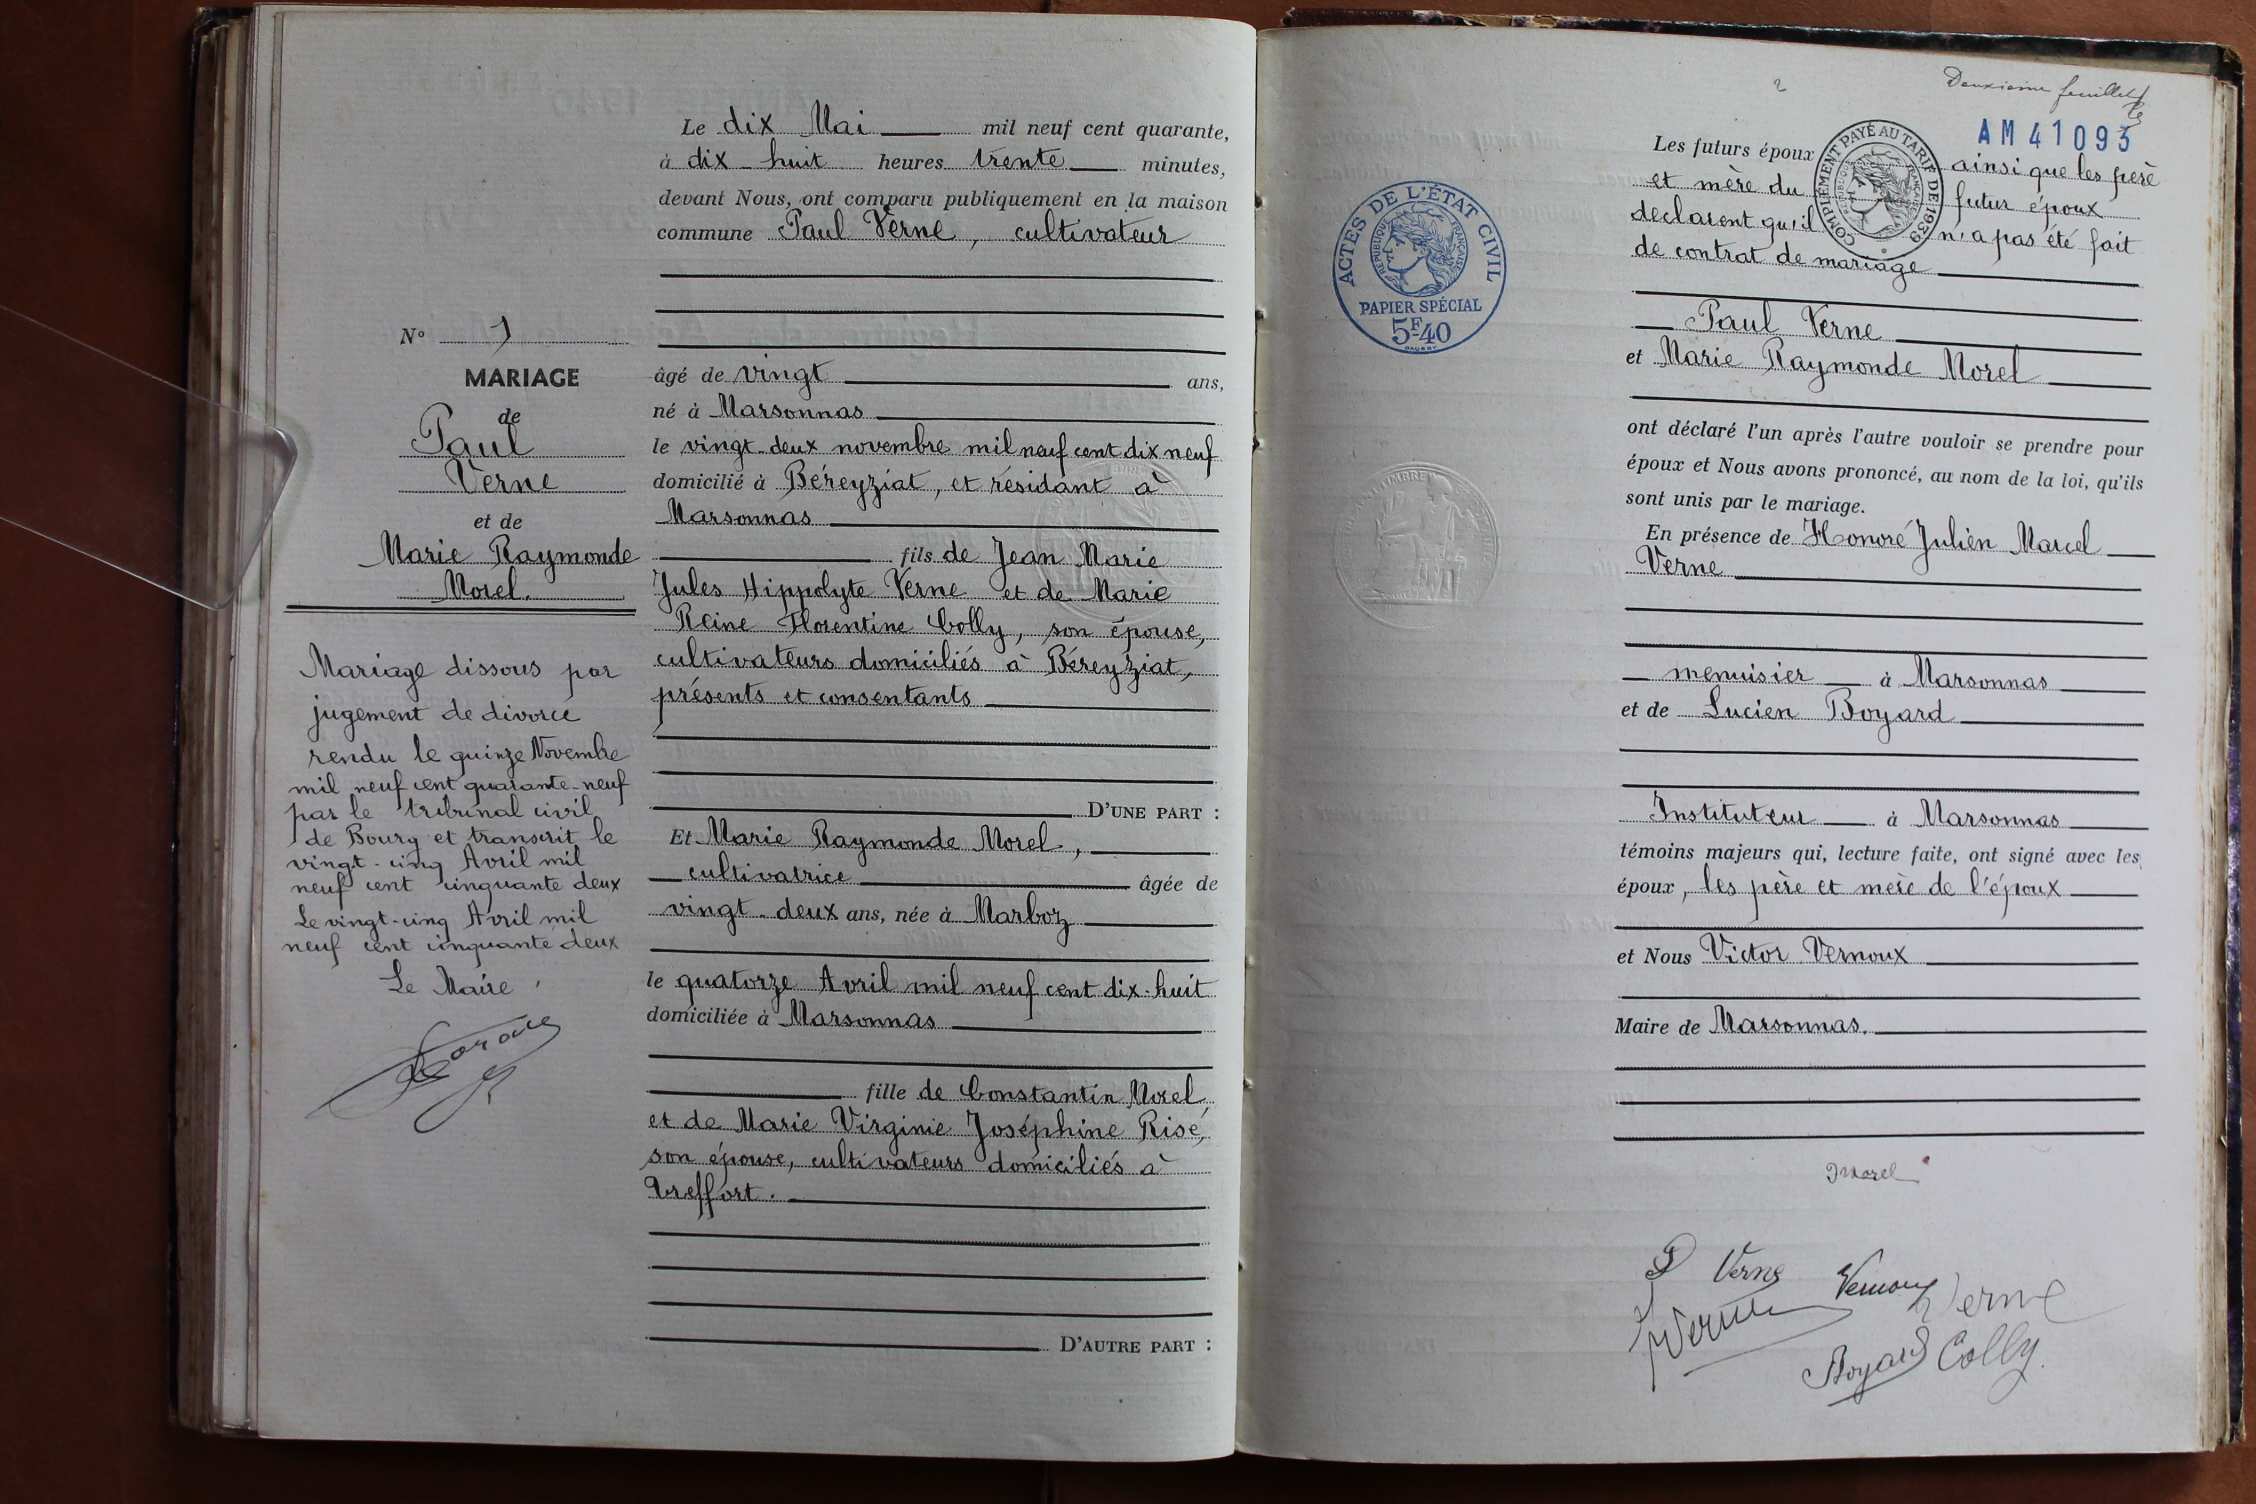 N° 1
MARIAGE
de
Paul
Verne
et de
Marie Raymonde
Morel.
Mariage dissous par
jugement de divorce
rendu le quinze Novembre
mil neuf cent quarante-neuf
par le tribunal civil
de Bourg et transcrit le
vingt-cinq Avril mil
neuf cent cinquante deux
Le vingt-cinq Avril mil
neuf cent cinquante deux
Le Maire,
Le dix Mai mil neuf cent quarante,
à dix-huit heures trente minutes,
devant Nous, ont comparu publiquement en la maison
commune Paul Verne, cultivateur
âgé de vingt ans,
né à Marsonnas
le vingt-deux novembre mil neuf cent dix neuf
domicilié à Béreyziat, et résidant à
Marsonnas
fils de Jean Marie
Jules Hippolyte Verne et de Marie
Reine Florentine Colly, son épouse,
cultivateurs domiciliés à Béreyziat,
présents et consentants
D'UNE PART :
Et Marie Raymonde Morel,
cultivatrice âgée de
vingt-deux ans, née à Marboz
le quatorze Avril mil neuf cent dix-huit
domiciliée à Marsonnas
fille de Constantin Morel
et de Marie Virginie Joséphine Risé,
son épouse, cultivateurs domiciliés à
Treffort.
D'AUTRE PART :
2
Deuxième feuillet
AM41093
COMPLÉMENT PAYÉ AU TARIF DE 1939
RÉPUBLIQUE FRANÇAISE
ACTES DE L'ÉTAT CIVIL
RÉPUBLIQUE FRANÇAISE
PAPIER SPÉCIAL
5F40
Les futurs époux ainsi que les père
et mère du futur époux
déclarent qu'il n'a pas été fait
de contrat de mariage
Paul Verne
et Marie Raymonde Morel
ont déclaré l'un après l'autre vouloir se prendre pour
époux et Nous avons prononcé, au nom de la loi, qu'ils
sont unis par le mariage.
En présence de Honoré Julien Marcel
Verne
menuisier à Marsonnas
et de Lucien Boyard
Instituteur à Marsonnas
témoins majeurs qui, lecture faite, ont signé avec les
époux, les père et mère de l'époux
et Nous Victor Vernoux
Maire de Marsonnas.
Morel
P Verne Vernoux Verne
Verne
Boyard Colly